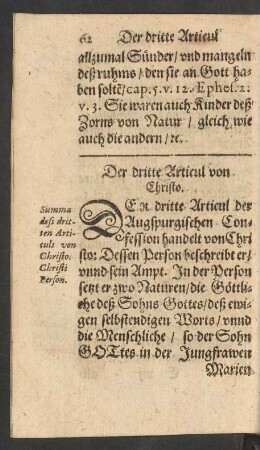 62 Der dritte Articul
allzumal Sünder/ vnd mangeln
deß ruhms/ den sie an Gott ha-
ben soltẽ/ cap. 5. v. 12. Ephes. 2.
v. 3. Sie waren auch Kinder deß
Zorns von Natur/ gleich wie
auch die andern/ ꝛc.
Der dritte Articul von
Christo.
Summa
deß drit-
ten Arti-
culs von
Christo.
Christi
Person.
DEr dritte Articul der
Augspurgischen Con-
fession handelt von Chri
sto: Dessen Person beschreibt er/
vnnd sein Ampt. In der Person
setzt er zwo Naturen/ die Göttli-
che deß Sohns Gottes/ deß ewi-
gen selbstendigen Worts/ vnnd
die Menschliche/ so der Sohn
GOTtes in der Jungfrawen
Marien